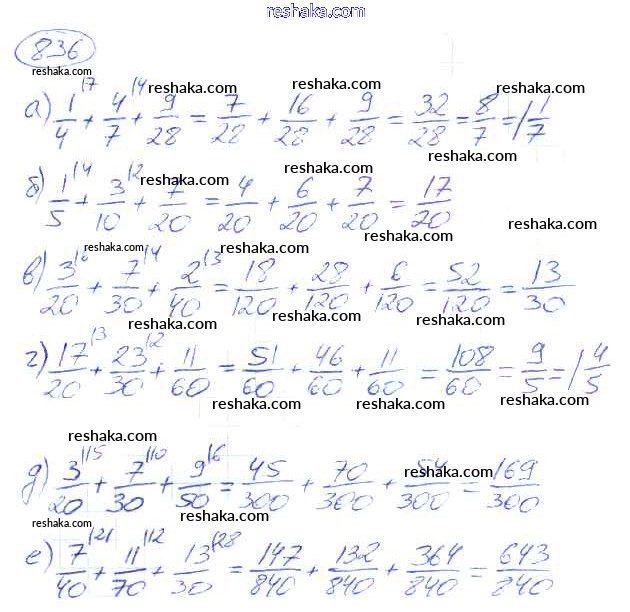 reshaka.ru
836
reshaka.com
reshaka.com reshaka.com
а) 1/4 \7 + 4/7 \4 + 9/28 = 7/28 + 16/28 + 9/28 = 32/28 = 8/7 = 1 1/7
reshaka.com reshaka.com
reshaka.com reshaka.com
б) 1/5 \4 + 3/10 \2 + 7/20 = 4/20 + 6/20 + 7/20 = 17/20
reshaka.com reshaka.com
reshaka.com reshaka.com
в) 3/20 \6 + 7/30 \4 + 2/40 \3 = 18/120 + 28/120 + 6/120 = 52/120 = 13/30
reshaka.com reshaka.com reshaka.com
г) 17/20 \3 + 23/30 \2 + 11/60 = 51/60 + 46/60 + 11/60 = 108/60 = 9/5 = 1 4/5
reshaka.com reshaka.com reshaka.com
reshaka.com
д) 3/20 \15 + 7/30 \10 + 9/50 \6 = 45/300 + 70/300 + 54/300 = 169/300
reshaka.com
reshaka.com reshaka.com reshaka.com
е) 7/40 \21 + 11/70 \12 + 13/30 \28 = 147/840 + 132/840 + 364/840 = 643/840